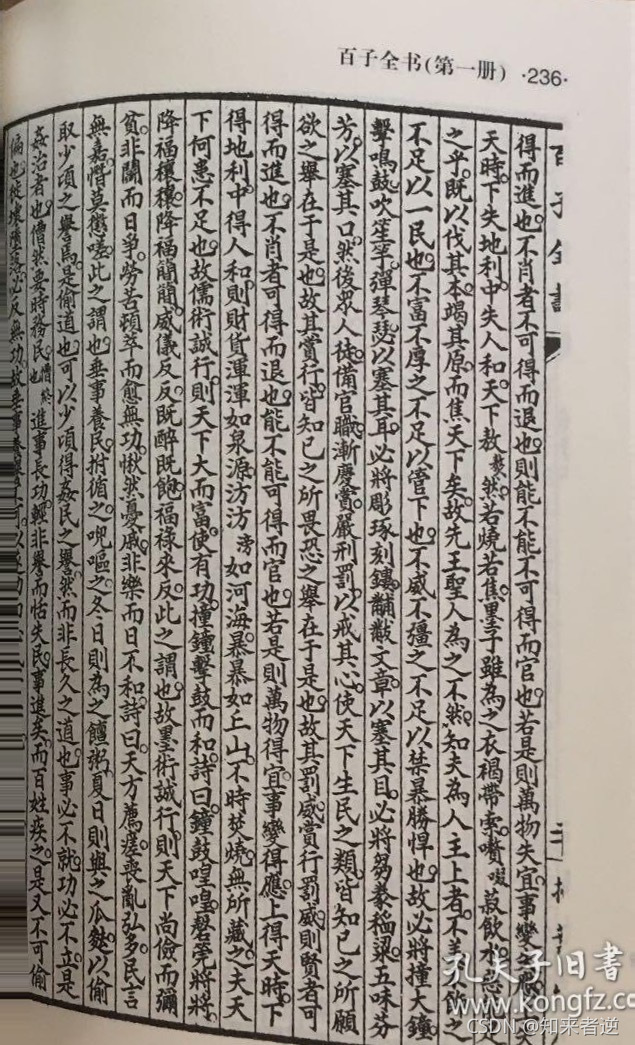 百子全书(第一册) ·236·
得而進也不肖者不可得而退也則能不能不可得而官也若是則萬物失宜事變
天時下失地利中失人和天下敖敖然若燒若焦墨子雖為之衣褐帶索嚽菽飲水
之乎既以伐其本竭其原而焦天下矣故先王聖人為之不然知夫為人主上者不美
不足以一民也不富不厚之不足以管下也不威不强之不足以禁暴勝悍也故必將撞大鐘
擊鳴鼓吹笙竽彈琴瑟以塞其耳必將彫琢刻鏤黼黻文章以塞其目必將芻豢稻粱五味芬
芳以塞其口然後眾人徒備官職漸慶賞嚴刑罰以戒其心使天下生民之類皆知已之所願
欲之舉在于是也故其賞行皆知已之所畏恐之舉在于是也故其罰威賞行罰威則賢者可
得而進也不肖者可得而退也能不能可得而官也若是則萬物得宜事變得應上得天時下
得地利中得人和則財貨渾渾如泉源汸汸滂如河海暴暴如丘山不時焚燒無所藏之夫天
下何患不足也故儒術誠行則天下大而富使有功撞鐘擊鼓而和詩曰鐘鼓喤喤磬筦將將
降福穰穰降福簡簡威儀反反既醉既飽福祿來反此之謂也故墨術誠行則天下尚儉而彌
貧非鬬而日爭勞苦頓萃而愈無功愀然憂戚非樂而日不和詩曰天方薦瘥喪亂弘多民言
無嘉憯莫懲嗟此之謂也垂事養民拊循之唲嘔之冬日則為之饘粥夏日則與之瓜麩以偷
取少頃之譽焉是偷道也可以少頃得姦民之譽然而非長久之道也事必不就功必不立是
姦治者也僡然要時務民進事長功輕非譽而恬失民事進矣而百姓疾之是又不可偷
偏也徙壞墮落必反無功故垂事養譽不可以遂功
孔夫子旧書
www.kongfz.c
CSDN @知来者逆